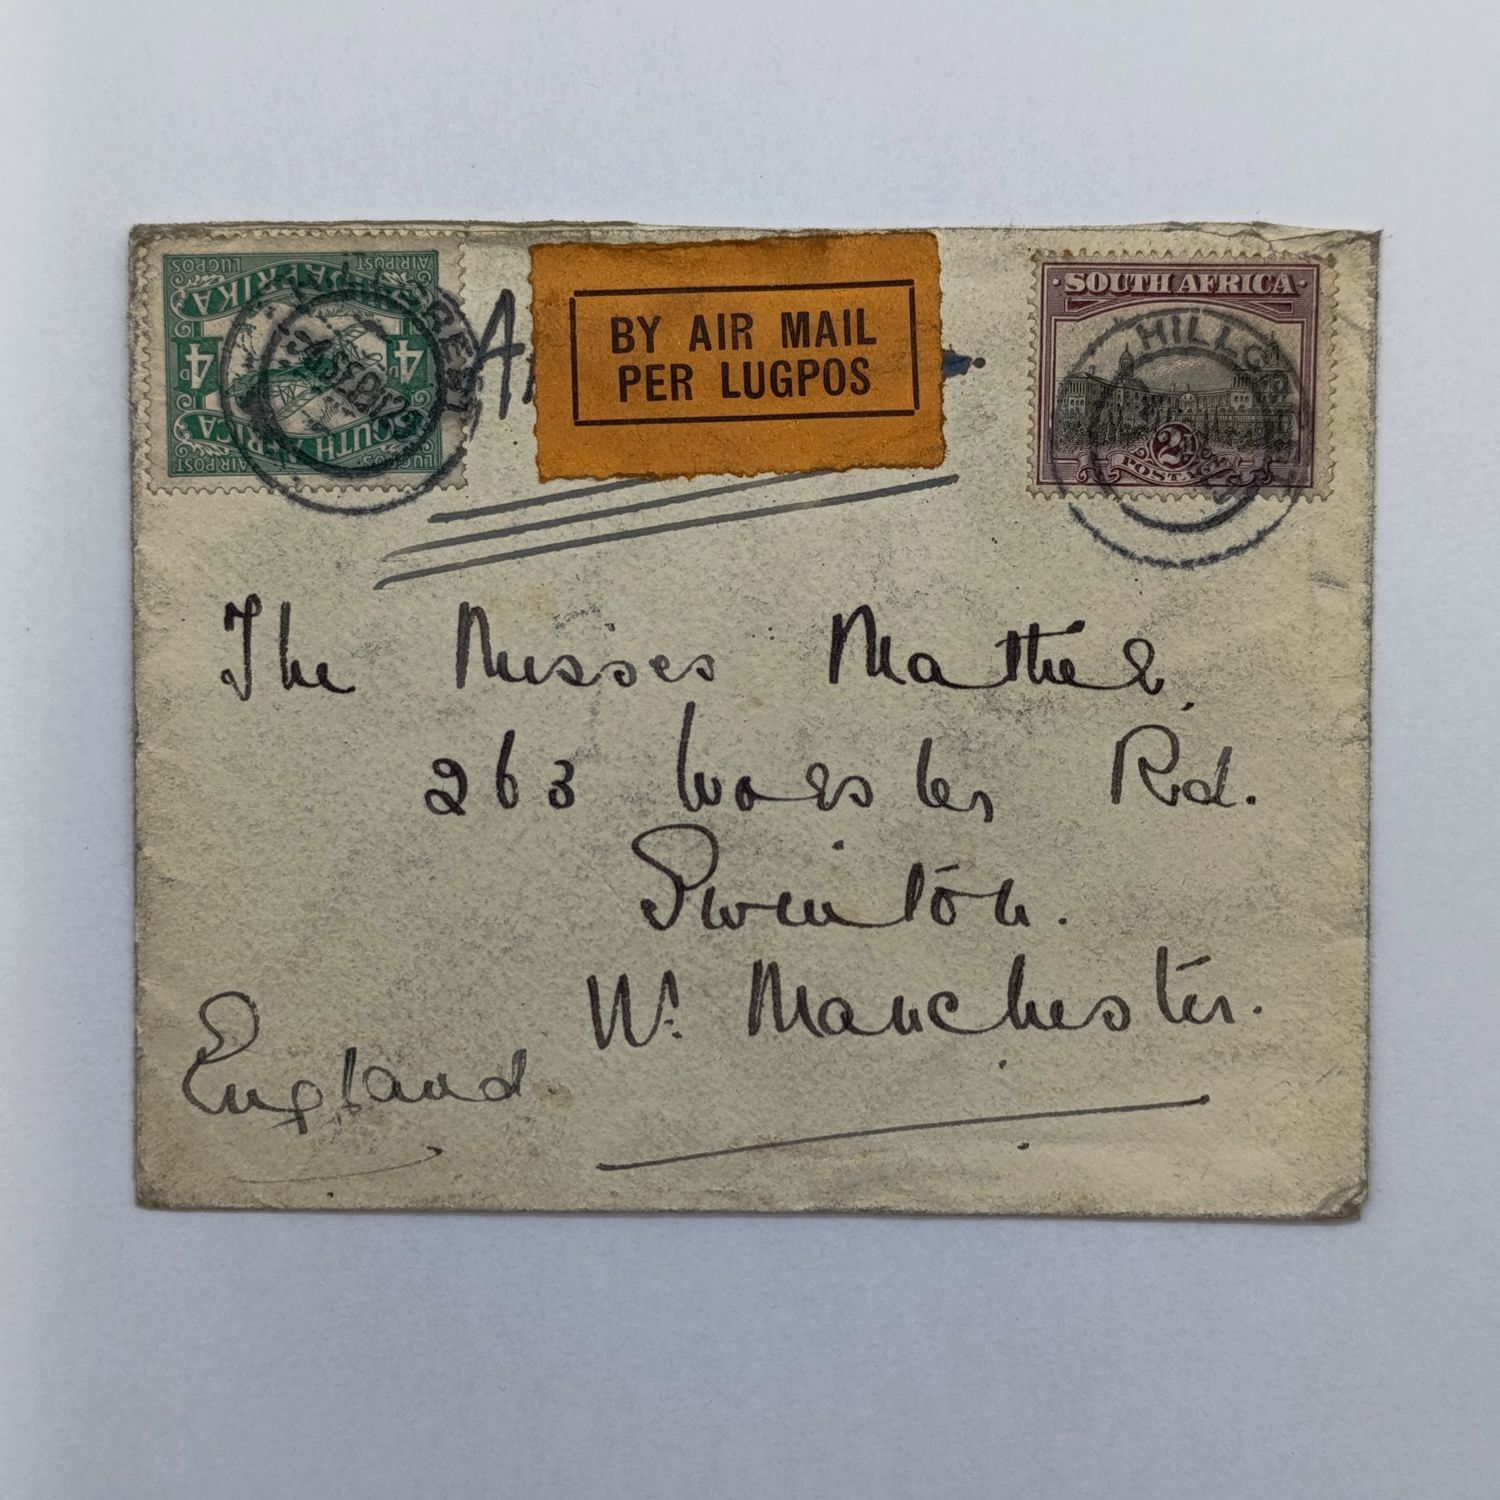 AIR POST
LUGPOS
SOUTH AFRICA
4D
4D
SOUTH AFRICA
LUGPOS
AIR POST
BY AIR MAIL
PER LUGPOS
·SOUTH AFRICA·
2D
POSTAGE
HILLC
The Misses Mather,
263 Worsley Rd.
Swinton.
Nr. Manchester.
England.